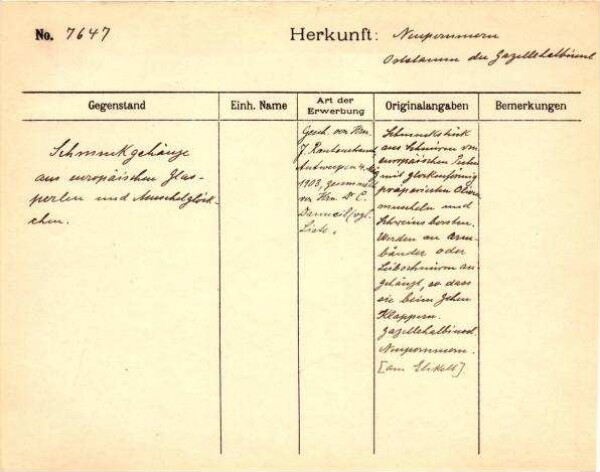 No. 7647
Herkunft: Neupommern
Oststamm der Gazellehalbinsel
Gegenstand
Einh. Name
Art der Erwerbung
Originalangaben
Bemerkungen
Schmuckgehänge
aus europäischen Glas-
perlen und Muschelglöck-
chen.
Gesch. von Hrn.
J. Rautenstrauch,
Antwerpen
1903, gesammelt
von Hrn. Dr. C.
Danneil, vgl.
Liste.
Schmuckstück
aus Schnüren von
europäischen Perlen
mit glockenförmig
präparierten
muscheln und
Schweinsborsten.
Werden an Arm-
bänder oder
Leibschnüren an-
gehängt, so dass
sie beim Gehen
klappern.
Gazellehalbinsel
Neupommern.